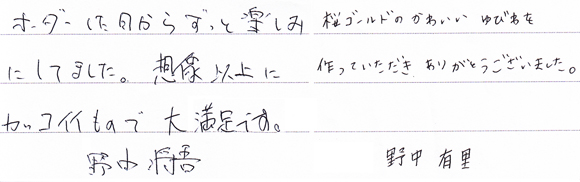 オーダーした日からずっと楽しみ
にしてました。想像以上に
カッコイイもので大満足です。
野中 将吾
桜ゴールドのかわいいゆびわを
作っていただき ありがとうございました。
野中 有里